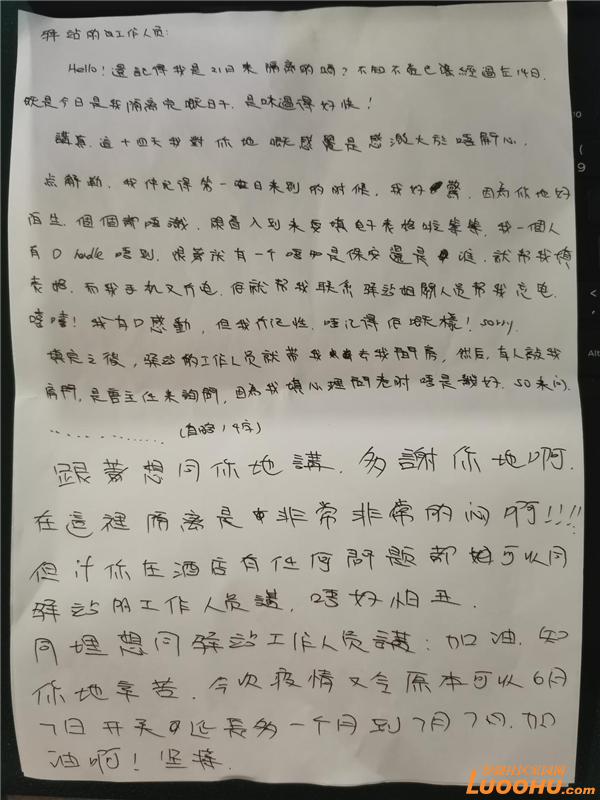 驿站的工作人员:
Hello! 還記得我是21日來隔离的嗎? 不知不覺已經經過左14日,
既是今日是我隔离完嘅日子, 是咪過得好快!
講真, 這十四天我對你地嘅感覺是感激大於唔開心.
点解勒, 我仲记得第一日来到的时候, 我好驚, 因為你地好
陌生, 個個都唔識, 跟着入到来要填电子表格啦等等, 我一個人
有D handle 唔到, 跟着就有一个唔知是保安還是誰, 就帮我填
表格, 而我手机又冇电, 佢就帮我联系驿站相關人员帮我充电
嘩嘩! 我有D感動, 但我冇记性, 唔记得佢嘅樣! sorry.
填完之後, 驿站的工作人员就带我去我間房, 然后, 有人敲我
房門, 是 主任来詢問, 因為我填心理問卷时唔是幾好, so来问.
(省略1字)
跟着想同你地講, 多謝你地啊,
在這裡隔离是非常非常的闷啊!!!!
但 你在酒店有任何問題都可以同
驿站的工作人员講, 唔好怕丑.
同埋想同驿站工作人员講: 加油, 知
你地辛苦, 今次疫情又令原本可以6月
7日开关延長多一个月到7月7日, 加
油啊! 坚持.
LUOOHU.com